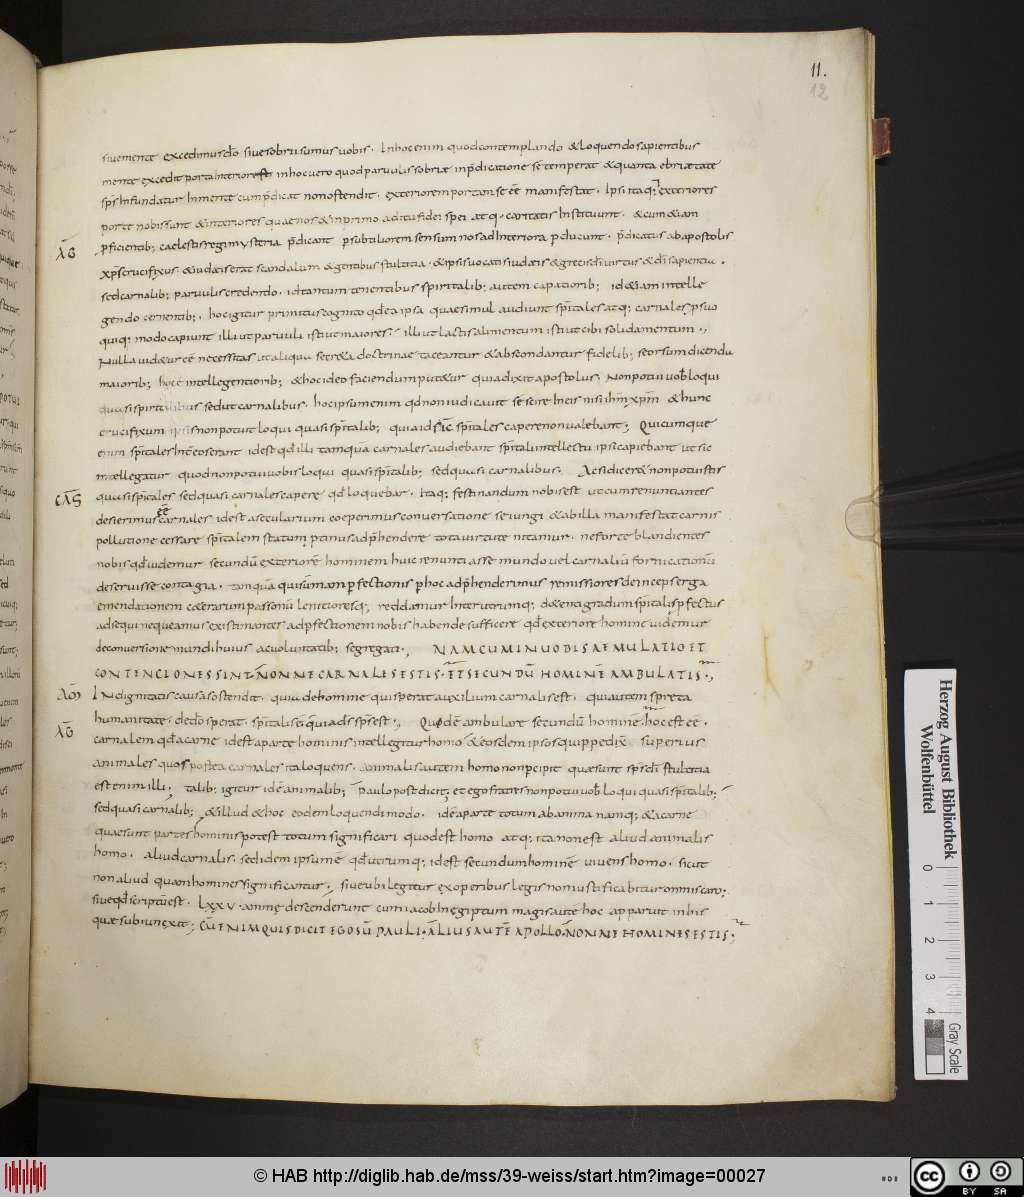 11.
12
siuemente excedimus dō siue sobrii sumus uobis. In hoc enim quod contemplando & loquendo sapientibus
mente excedit porta interiore in hoc uero quod paruulis sobriæ in p̄dicatione se temperat & quanta ebriætate
sps̄ infundatur in mente cum p̄dicat non ostendit. exteriorem portam se ēē manifestat. Ipsi itaq; exteriores
portæ nobis sunt & interiores quae nos & in primo aditu fidei spei atq. caritatis instituunt. & cum &iam
λḠ
p̄ficientib; caelestis regni mysteria p̄dicant p subtiliorem sensum nos ad interiora p̄ducunt. p̄dicatus ab apostolis
xp̄s crucifixus. & iudæis erat scandalum & gentibus stultitia. & ipsis uocatis iudæis & grecis dī uirtus & dī sapientia.
sed carnalib; paruulis credendo. id tantum tenentibus spiritalib; autem capatiorib; id &iam intelle
gendo cernentib;. hoc igitur primitus cognito qđ ea ipsa quae simul audiunt spītales atq; carnales p suo
quiq; modo capiunt illi ut paruuli isti ut maiores. illi ut lactis alimentum isti ut cibi solidamentum.,
Nulla uid&ur ēē necessitas ut aliqua secr&a doctrinae taceantur & abscondantur fidelib; seorsum dicenda
maiorib; hoc ē intellegentiorib; & hoc ideo faciendum put&ur quia dixit apostolus. Non potui uob̄ loqui
quasi spiritalibus sed ut carnalibus. hoc ipsum enim qđ non iudicauit se scire in eis nisi ihm̄ xpm̄ & hunc
crucifixum non potuit loqui quasi spītalib; quia id sic spītales capere non ualebant; Quicumque
enim spītales int̄ eos erant idest qđ illi tamquā carnales audiebant spītali intellectu ipsi capiebant ut sic
intellegatur quod non potui uobis loqui quasi spītalib; sed quasi carnalibus. Ac si dicer& non potuistis
CλS̄
quasi spītales sed quasi carnales capere qđ loquebar. Itaq; festinandum nobis est ut cum renuntiantes
ēē
desierimus carnales idest a secularium coeperimus conuersatione seiungi & ab illa manifesta carnis
pollutione cessare spītalem statum p̄tinus adp̄hendere tota uirtute nitamur. ne forte blandientes
nobis qđ uidemur secundū exteriorē hominem huic renuntiasse mundo uel carnaliū fornicationū
deseruisse contagia. tamquā qui summam p̄fectionis p hoc adp̄henderimus remissiores deinceps erga
emendationem c&erarum passionū lentioresq; reddamur inter utrumq; d&enti gradum spītalis p̄fectus
adsequi nequeamus existimantes ad p̄fectionem nobis habende sufficere qđ exteriore homine uidemur
de conuersione mundi huius ac uoluntatib; segregari., NAM CUM IN UOBIS AEMULATIO ET
CONTENCIONES SINT. NONNE CARNALES ESTIS. ET SECUNDŪ HOMINĒ AMBULATIS.,
Indignitatis causas ostendit. quia de homine qui sperat auxilium carnalis est. qui autem spreta
humanitate. de dō sperat. spītalis ē quia dī sps̄ est., Quidē ambulare secundū hominē. hoc est ēē.
λḠ
carnalem qđ a carne idest a parte hominis intellegitur homo & eosdem ipsos quippe dix̄ superius
animales quos postea carnales ita loquens. animalis autem homo non p̄cipit quae sunt sp̄s dī stultitia
est enim illi; talib; igitur idē animalib; paulo post dicit; et ego fratres non potui uob̄ loqui quasi spītalib;
sed quasi carnalib; & illud & hoc eodem loquendi modo. idē a parte totum ab anima namq; & a carne
quae sunt partes hominis potest totum significari quod est homo atq; ita non est aliud animalis
homo. aliud carnalis. sed idem ipsum ē qđ utrumq; idest secundum hominē uiuens homo. sicut
non aliud quam homines significantur. siue ubi legitur ex operibus legis non iustificabitur omnis caro;
siue qđ scriptū est. LXXV. animę descenderunt cum iacob in ęgiptum magis aute hoc apparuit in his
quae subiunexit; CŪ ENIM QUIS DICIT EGO SŪ PAULI. ALIUS AUTĒ APOLLO. NONNE HOMINES ESTIS;
Herzog August Bibliothek
Wolfenbüttel
0 1 2 3 4
Gray Scale
© HAB http://diglib.hab.de/mss/39-weiss/start.htm?image=00027
cc BY SA